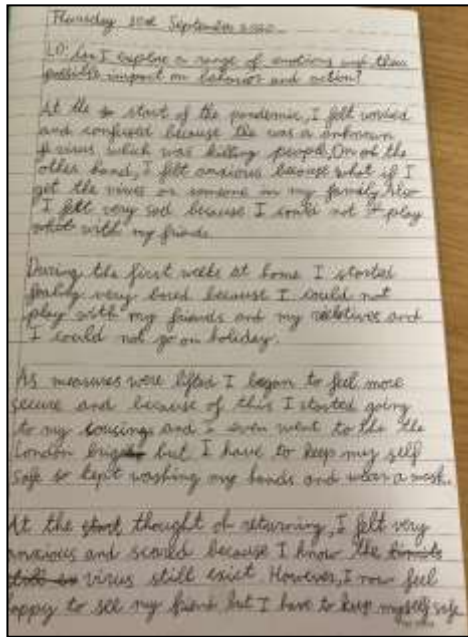 Thursday 10th September 2020
LO: Can I explore a range of emotions and their
possible impact on behavior and action?
At the so start of the pandemic, I felt worried
and confused because the was a unknown
virus which was killing people. On oh the
other hand, I felt anxious because what if I
get the virus or someone in my family. Also
I felt very sad because I could not play
what with my friends.
During the first weeks at home I started
feeling very bored because I could not
play with my friends and my relatives and
I could not go on holiday.
As measures were lifted I began to feel more
secure and because of this I started going
to my cousins and I even went to the the
London but I have to keep my self
safe so kept washing my hands and wear a mask.
At the start thought of returning, I felt very
anxious and scared because I know the
still virus still exist. However, I now feel
happy to see my friend but I have to keep myself safe